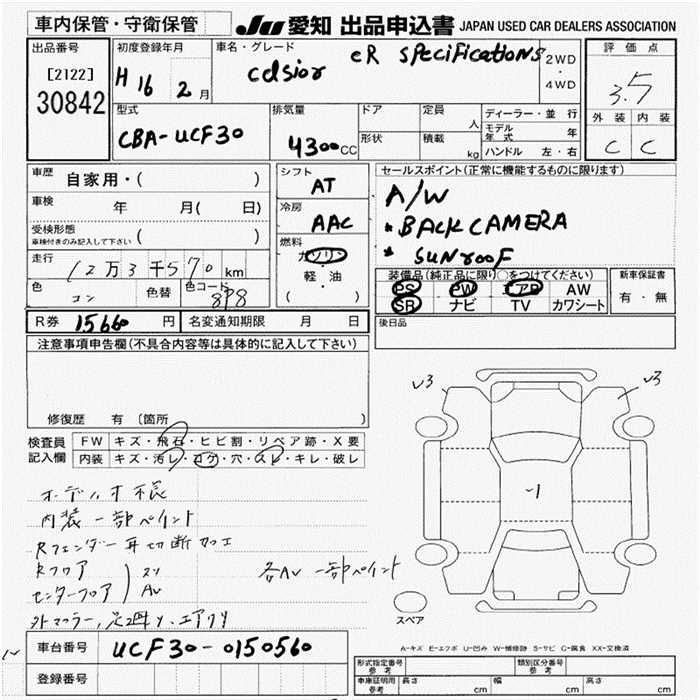 車内保管・守衛保管
JU 愛知 出品申込書 JAPAN USED CAR DEALERS ASSOCIATION
出品番号
[2122]
30842
初度登録年月
H 16 2月
車名・グレード
celsior eR Specifications
2WD
・
4WD
評価点
3.5
外装 内装
C C
型式
CBA-UCF30
排気量
4300CC
ドア
形状
定員
人
積載
kg
ディーラー・並行
モデル年式 年
ハンドル 左・右
車歴 自家用・( )
車検 年 月( 日)
受検形態
車検付きのみ記入して下さい ( )
走行 12万3千570km
色 コン 色替 色コード 8P8
シフト
AT
冷房
AAC
燃料
ガソリン
・
軽・油
( )
セールスポイント(正常に機能するものに限ります)
A/W
* BACK CAMERA
* SUNROOF
装備品(純正品に限り○をつけてください)
PS PW エアB AW
SR ナビ TV カワシート
新車保証書
有・無
R券 15660円 名変通知期限 月 日
後日品
注意事項申告欄(不具合内容等は具体的に記入して下さい)
修復歴 有 (箇所 )
検査員
記入欄
FW キズ・飛石・ヒビ割・リペア跡・X要
内装 キズ・汚レ・コゲ・穴・スレ・キレ・破レ
オーディオ不良
内装一部ペイント
Rフェンダー耳切断加工
Rフロア
センターフロア
スリ
AV
各AV 一部ペイント
外マフラー,足廻り,エアクリ
√3
√3
-1
スペア
A-キズ E-エクボ U-凹み W-補修跡 S-サビ C-腐食 XX-交換済
車台番号 UCF30-0150560
登録番号
形式指定番号
参考
類別区分番号
参考
車庫証明用
参考
長さ cm 幅 cm 高さ cm